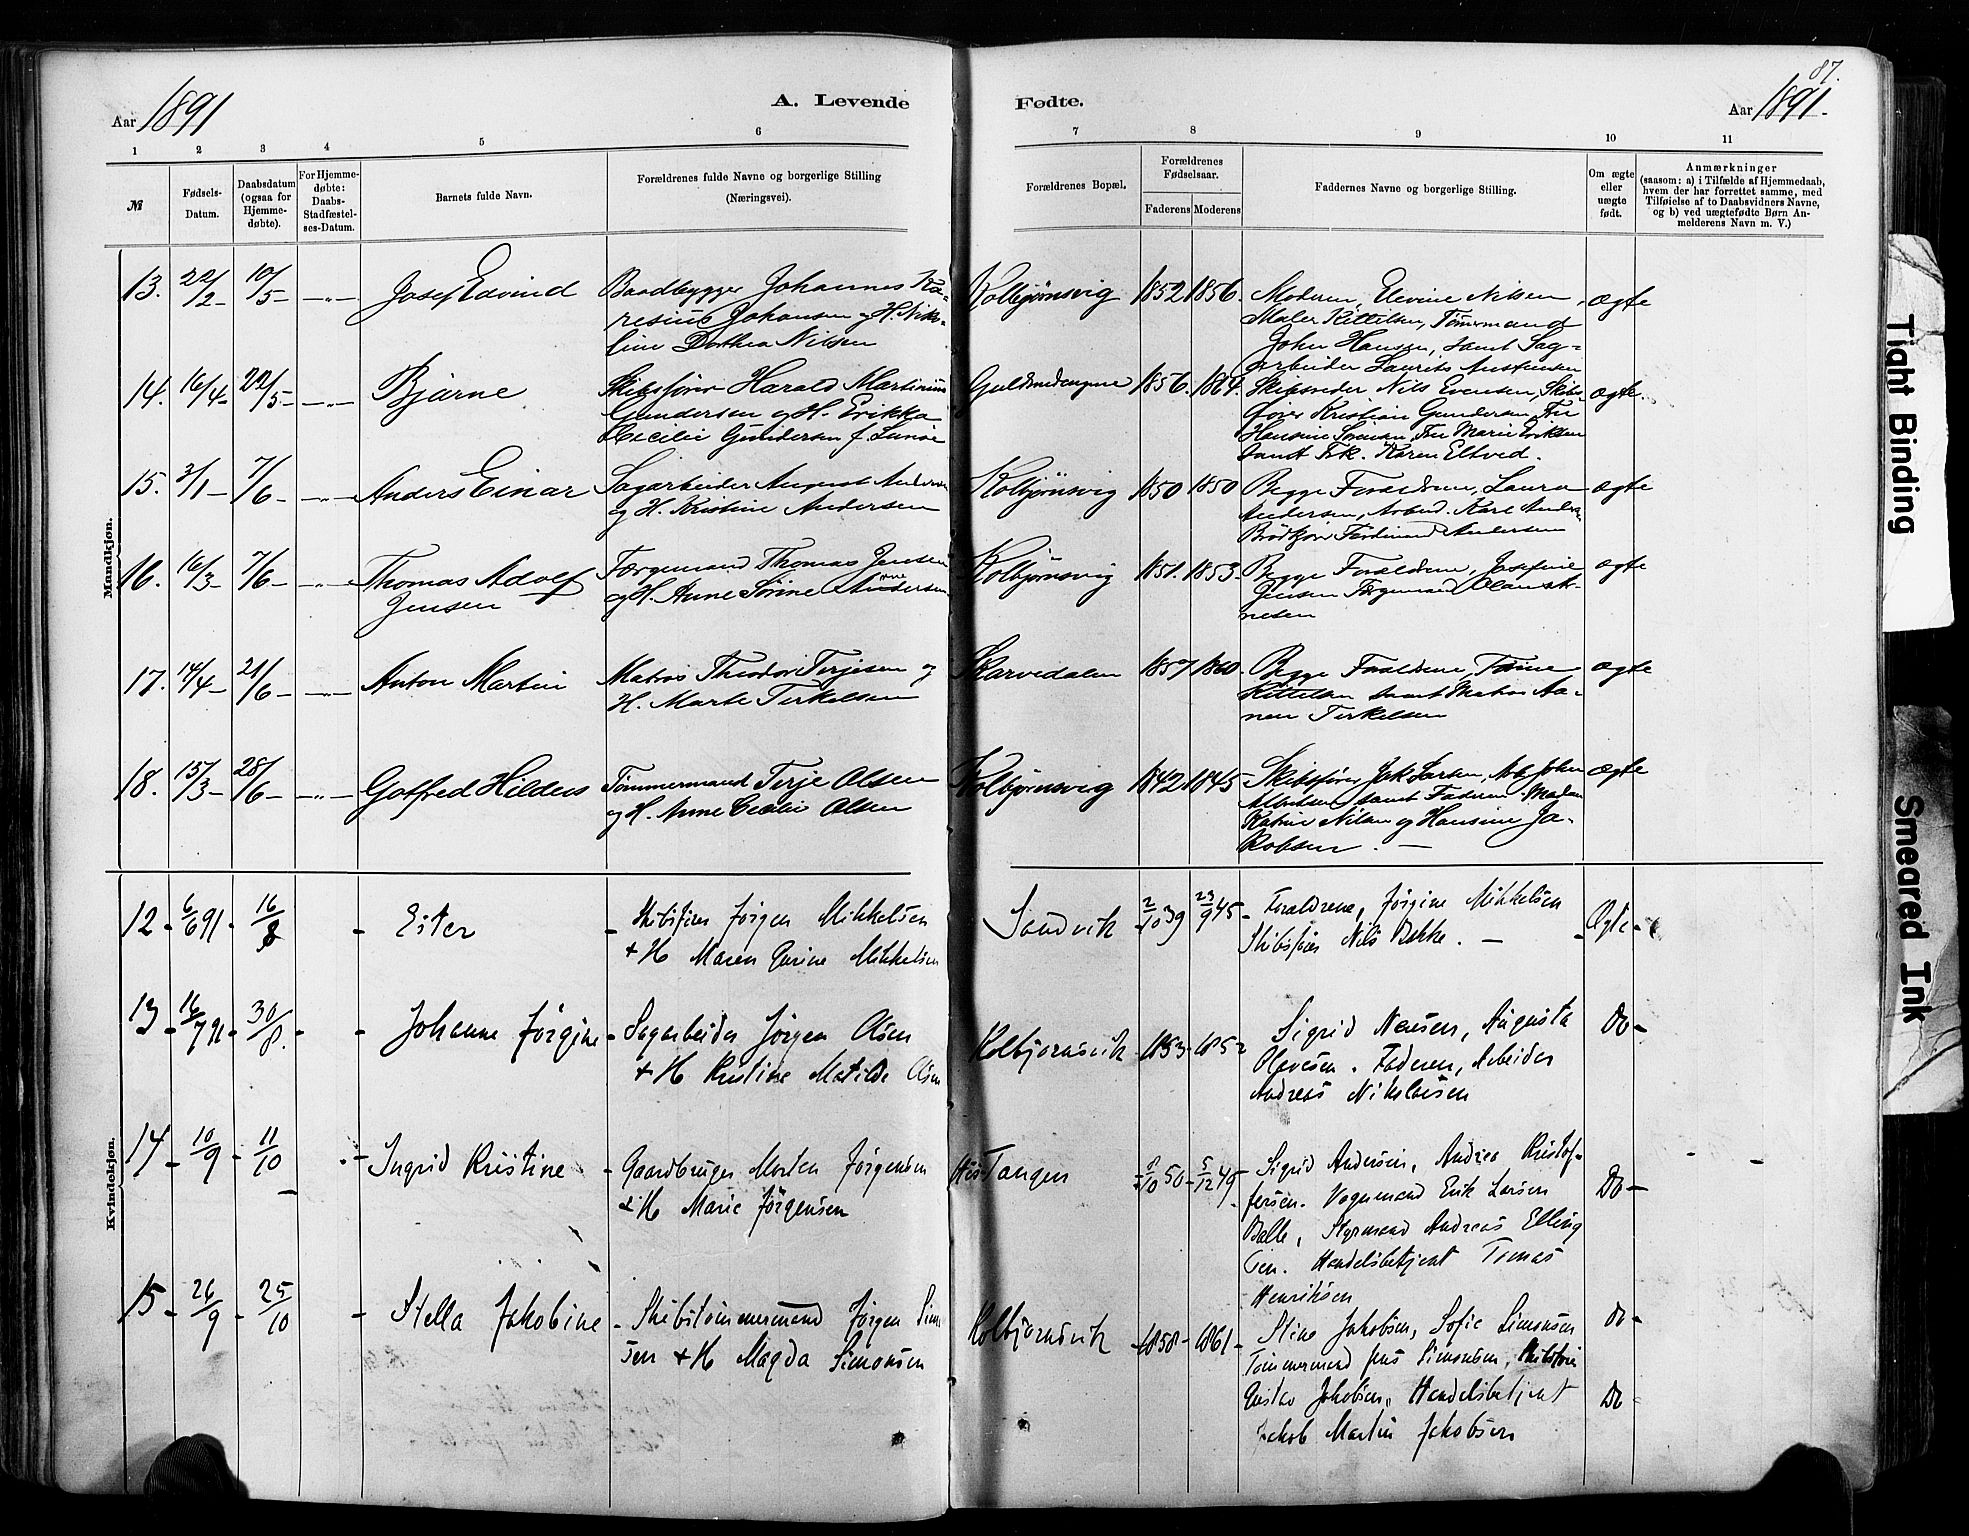 87.
Aar 1891
A. Levende
Fødte.
Aar 1891.
1 2 3 4 5 6 7 8 9 10 11
№
Fødsels-Datum.
Daabsdatum (ogsaa for Hjemmedøbte).
For Hjemmedøbte: Daabs-Stadfæstelses-Datum.
Barnets fulde Navn.
Forældrenes fulde Navne og borgerlige Stilling
(Næringsvei).
Forældrenes Bopæl.
Forældrenes Fødselsaar.
Faderens Moderens
Faddernes Navne og borgerlige Stilling.
Om ægte eller uægte født.
Anmærkninger
(saasom: a) i Tilfælde af Hjemmedaab,
hvem der har forrettet samme, med
Tilføielse af to Daabsvidners Navne,
og b) ved uægtefødte Børn An-
melderens Navn m. V.)
Mandkjøn.
13. 22/2 - 10/5 - -"- Josef Edvind
Baadbygger Johannes Ka-
resius Johansen og H. Niko-
line Dorthea Nilsen
Kolbjørnsvig 1852 1856.
Moderen, Elevine Nilsen
Maler Kittelsen, Tømmermand
John Hansen, samt Sag-
arbeider Laurits
ægte
14. 16/4 - 22/5 - -"- Bjarne
Skibsfører Harald Martinius
Gundersen og H. Erikka
Cecilie Gundersen f.
1856. 1864.
Skibsreder Nils Evensen, Skibs-
fører Kristian Gundersen, Fru
Hansine Sørensen, Fru Marie Eriksen
samt Frk. Karen Eltved.
ægte
15. 3/1 - 7/6 - -"- Anders Einar
Sagarbeider August Andersen
og H. Kristine Andersen
Kolbjørnsvig 1850 1850
Begge Forældrene, Laura
Andersen, Arbeid. Karl
Ferdinand Andersen
ægte
16. 16/3 - 7/6 - -"- Thomas Adolf
Jensen
Færgemand Thomas Jensen
og H. Anne Sørine Andersen
Kolbjørnsvig 1851. 1853.
Begge Forældrene, Josefine
Jensen Færgemand
nesen
ægte
17. 14/4 - 21/6 - -"- Anton Martin
Matros Theodor Terjesen og
H. Marte Terkelsen
Skarvedalen 1857 1860.
Begge Forældrene,
Kittelsen samt Matros Aa-
nen Terkelsen
ægte
18. 15/3 - 28/6 - -"- Gotfred Hilders
Tømmermand Terje Olsen
og H. Anne Cecilie Olsen
Kolbjørnsvig 1842 1845
Skibsfører Jak Larsen, Arb John
Albertsen samt Faderen. Madam
Katrine Nilsen og Hansine Ja-
kobsen. —
ægte
Kvindekjøn.
12 - 6/6 91 - 16/8 - Ester
- Skibsfører Jørgen Mikkelsen
+ H Maren Gurine Mikkelsen
Sandvik 2/10 39 23/9 45
- Forældrene, Jørgine Mikkelsen
Skibsfører Nils Bekke. —
- Ægte -
13 - 16/7 91 - 30/8. - - Johanne Jørgine
- Sagarbeider Jørgen Olsen
+ H Kristine Matilde Olsen
Kolbjornsvik 1853 - 1852
Sigrid Nensen, Augusta
Olavesen. Faderen, Arbeider
Andreas Nikolaisen
Do -
14 - 10/9 - 11/10 - Ingrid Kristine
- Gaardbruger Morten Jørgensen
+ H Marie Jørgensen
His Tangen 8/10 50 - 5/12 49 -
Sigrid Andersen, Andrea Kristof-
fersen. Vognmand Erik Larsen
Balle, Styrmand Andreas Elling
sen. Handelsbetjent Tomas
Henriksen
Do -
15 - 26/9 - 25/10 - Stella Jakobine
- Skibstømmermand Jørgen Simon
sen + H Magda Simonsen
Kolbjornsvik - 1858 - 1861 -
Stine Jakobsen, Sofie Simonsen
Tømmermand Jens Simonsen, Skibsfører
Gustav Jakobsen, Handelsbetjent
Jakob Martin Jakobsen
Do -
Do -
Tight Binding
Smeared Ink